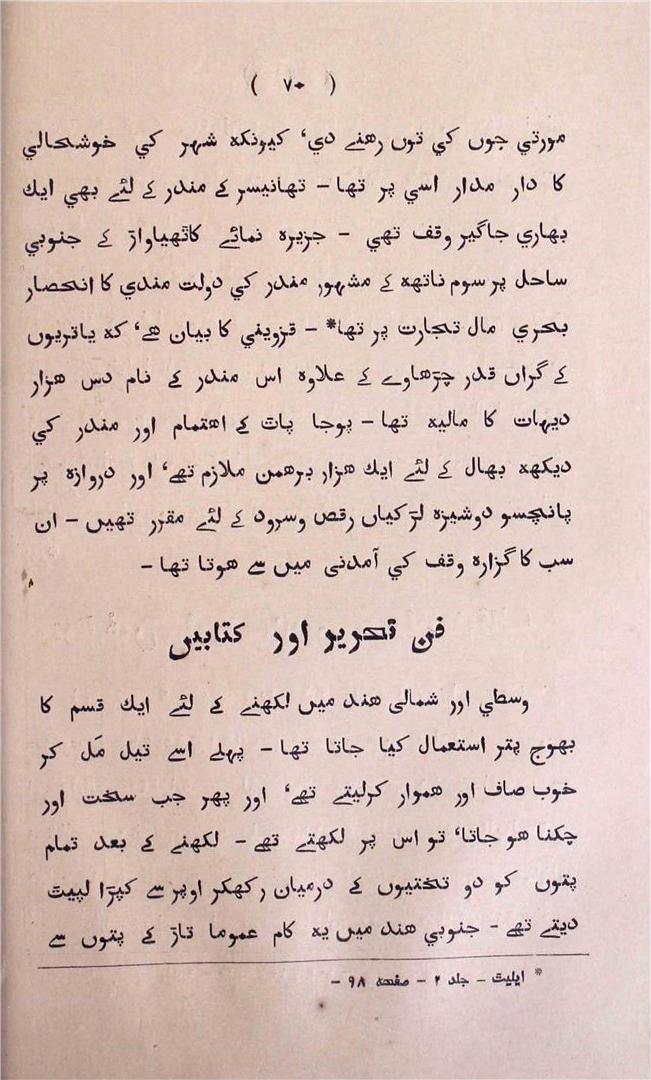 ( ۷۰ )
مورتي جوں کي توں رهنے دي، کیونکہ شہر کي خوشحالي
کا دار مدار اسي پر تھا - تھانیسر کے مندر کے لئے بھي ایک
بھاري جاگیر وقف تھي - جزیرہ نمائے کاٹھیاواڑ کے جنوبي
ساحل پر سوم ناتھہ کے مشہور مندر کي دولت مندي کا انحصار
بحري مال تجارت پر تھا* - قزویني کا بیان هے، کہ یاتریوں
کے گراں قدر چڑھاوے کے علاوہ اس مندر کے نام دس هزار
دیہات کا مالیہ تھا - پوجا پاٹ کے اهتمام اور مندر کي
دیکھہ بھال کے لئے ایک هزار برهمن ملازم تھے، اور دروازہ پر
پانچسو دوشیزہ لڑکیاں رقص وسرود کے لئے مقرر تھیں - ان
سب کا گزارہ وقف کي آمدنی میں سے هوتا تھا -
فن تحریر اور کتابیں
وسطي اور شمالی هند میں لکھنے کے لئے ایک قسم کا
بھوج پتر استعمال کیا جاتا تھا - پہلے اسے تیل مَل کر
خوب صاف اور هموار کرلیتے تھے، اور پھر جب سخت اور
چکنا هو جاتا، تو اس پر لکھتے تھے - لکھنے کے بعد تمام
پتوں کو دو تختیوں کے درمیان رکھکر اوپر سے کپڑا لپیٹ
دیتے تھے - جنوبي هند میں یہ کام عموما تاڑ کے پتوں سے
* ایلیٹ - جلد ۲ - صفحہ ۹۸ -